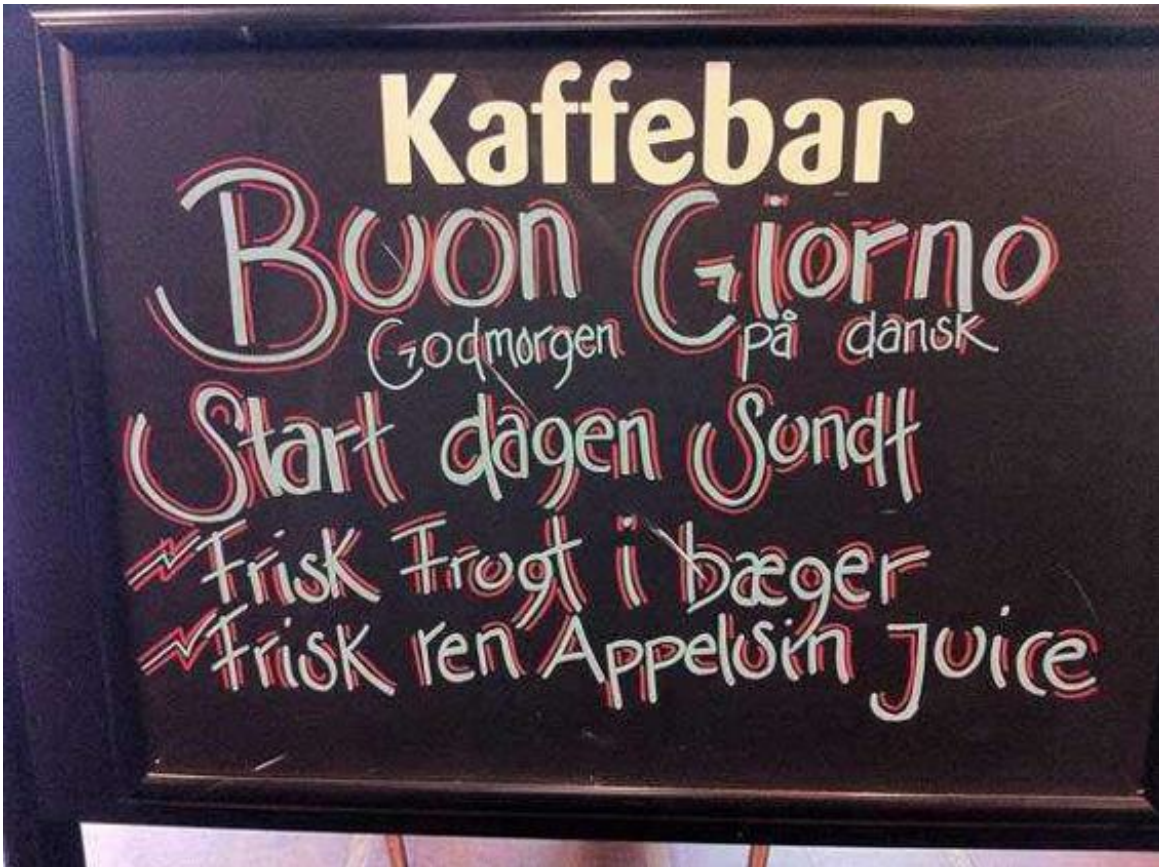 Kaffebar
Buon Giorno
Godmorgen på dansk
Start dagen Sundt
Frisk Frugt i bæger
Frisk ren Appelsin Juice